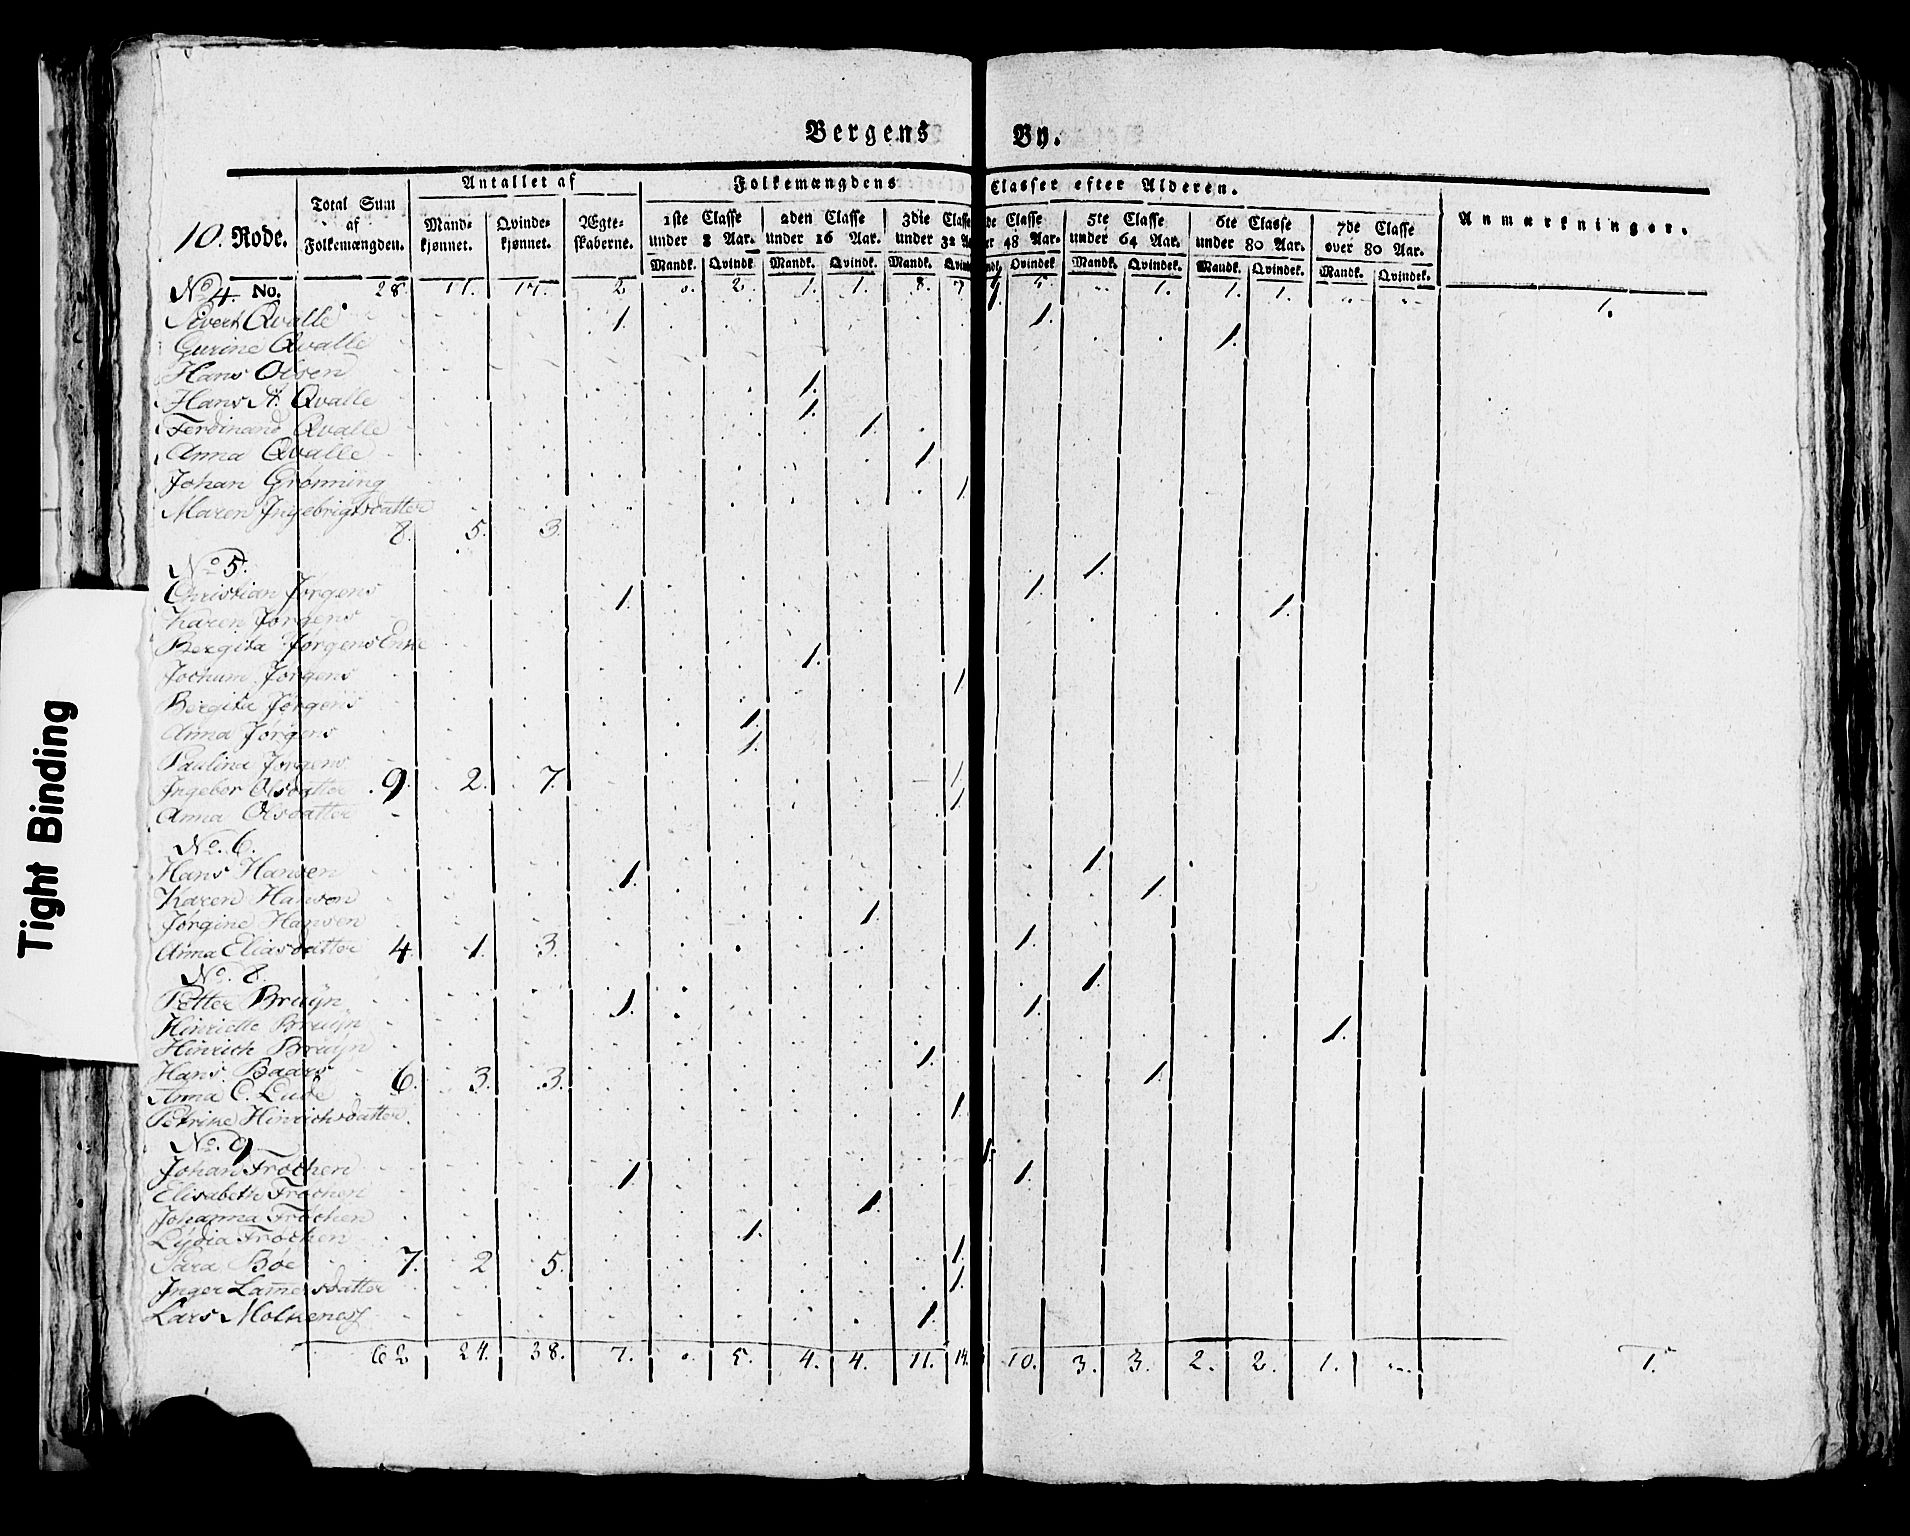 Bergens By.
10. Rode.
Total Sum af Folkemængden.
Antallet af
Mandkjønnet. Qvindekjønnet. Ægteskaberne.
Folkemængdens Classer efter Alderen.
1ste Classe under 8 Aar. 2den Classe under 16 Aar. 3die Classe under 32 Classe 48 Aar. 5te Classe under 64 Aar. 6te Classe under 80 Aar. 7de Classe over 80 Aar.
Mandk. Qvindk. Mandk. Qvindk. Mandk. Qvindek. Mandk. Qvindek. Mandk. Qvindek. Mandk. Qvindek.
Anmærkninger.
No. 28. 11. 17. 2. 2. 1. 1. 8. 7 5. 1. 1. 1.
No 4.
Sivert Qvalle 1. 1.
Gurine Qvalle 1. 1.
Hans Olsen
Hans A. Qvalle 1.
Ferdinand Qvalle 1.
Anna Qvalle 1.
Johan Grønning 1.
Maren Ingebrigtsdatter 1.
8. 5. 3.
No 5.
Christian Jørgens 1.
Karen Jørgens 1. 1.
Bergita Jørgens Enke 1.
Jochum Jørgens 1.
Bergita Jørgens 1.
Anna Jørgens 1.
Paulina Jørgens 1.
Ingebor Olsdatter 9. 2. 7. 1.
Anna Olsdatter 1.
No. 6.
Hans Hansen 1. 1.
Karen Hansen 1.
Jørgine Hansen 1.
Anna Eliasdatter 4. 1. 3. 1.
No. 8.
Petter Bruÿn 1. 1.
Hinriette Bruÿn 1.
Hinrich Bruÿn 1.
Hans Baars 6. 3. 3. 1.
Anna C. Lude 1.
Petrine Hinrichsdatter 1.
No. 9
Johan Frøchen 1. 1.
Elisabeth Frøchen 1.
Johanna Frøchen 1.
Lÿdia Frøchen 1.
Sara Bøe 7. 2 5. 1.
Inger Lamesdatter 1.
Lars 1.
62 24. 38. 7. 5. 4. 4. 11. 14. 10. 3. 3. 2. 2. 1. 1.
Tight Binding